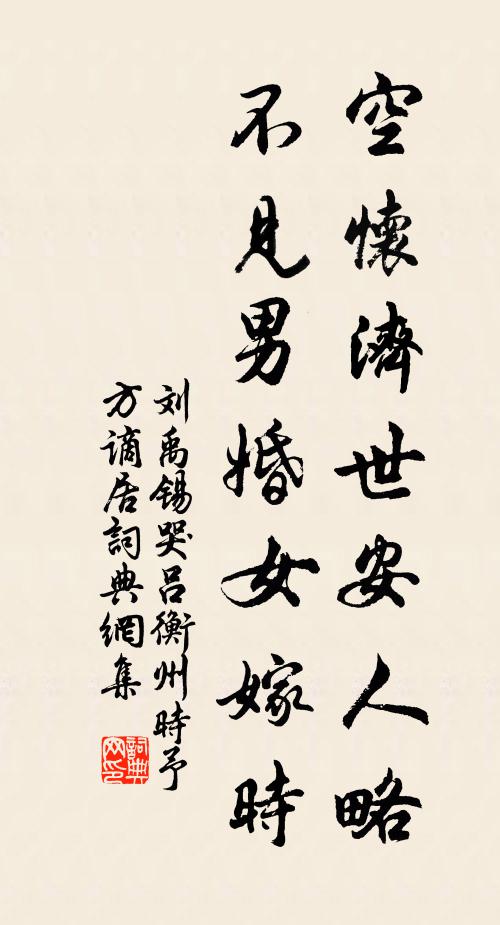 空懷濟世安人略
不見男婚女嫁時
刘禹锡哭吕衡州時予
方謫居詞典網集
詞典
网印